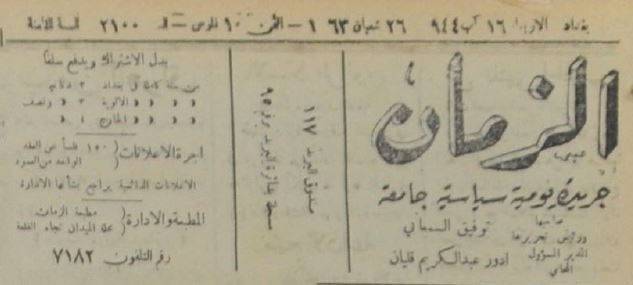 بغداد الاربعاء ١٦ آب ٩٤٤ ٢٦ شعبان ٦٣ ١٣ — الثمن ١٠ فلوس — العدد ٢١٠٠ السنة الثامنة
الزمان
جريدة يومية سياسية جامعة
صاحبها
ورئيس تحريرها
توفيق السمعاني
المدير المسؤول
المحامي
ادور عبدالكريم قليان
صندوق البريد ١١٧
مسجلة بدائرة البريد برقم ٦٥
بدل الاشتراك ويدفع سلفا
عن سنة كاملة في بغداد ٣ دنانير
» » » الالوية ٣ » ونصف
» » » الخارج ٤ »
اجرة الاعلانات ( ١٥٠ فلساً عن العقدة
الواحد من العمود
الاعلانات الدائمية يراجع بشأنها الادارة
المطبعة والادارة ( مطبعة الزمان
محلة الميدان تجاه القلعة
رقم التلفون ٧١٨٢